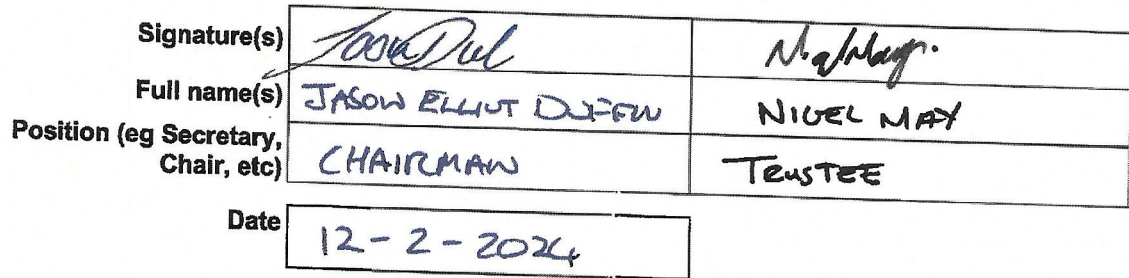 Signature(s)
Full name(s) JASON ELLIOT DUFFIN NIGEL MAY
Position (eg Secretary,
Chair, etc) CHAIRMAN TRUSTEE
Date 12-2-2024